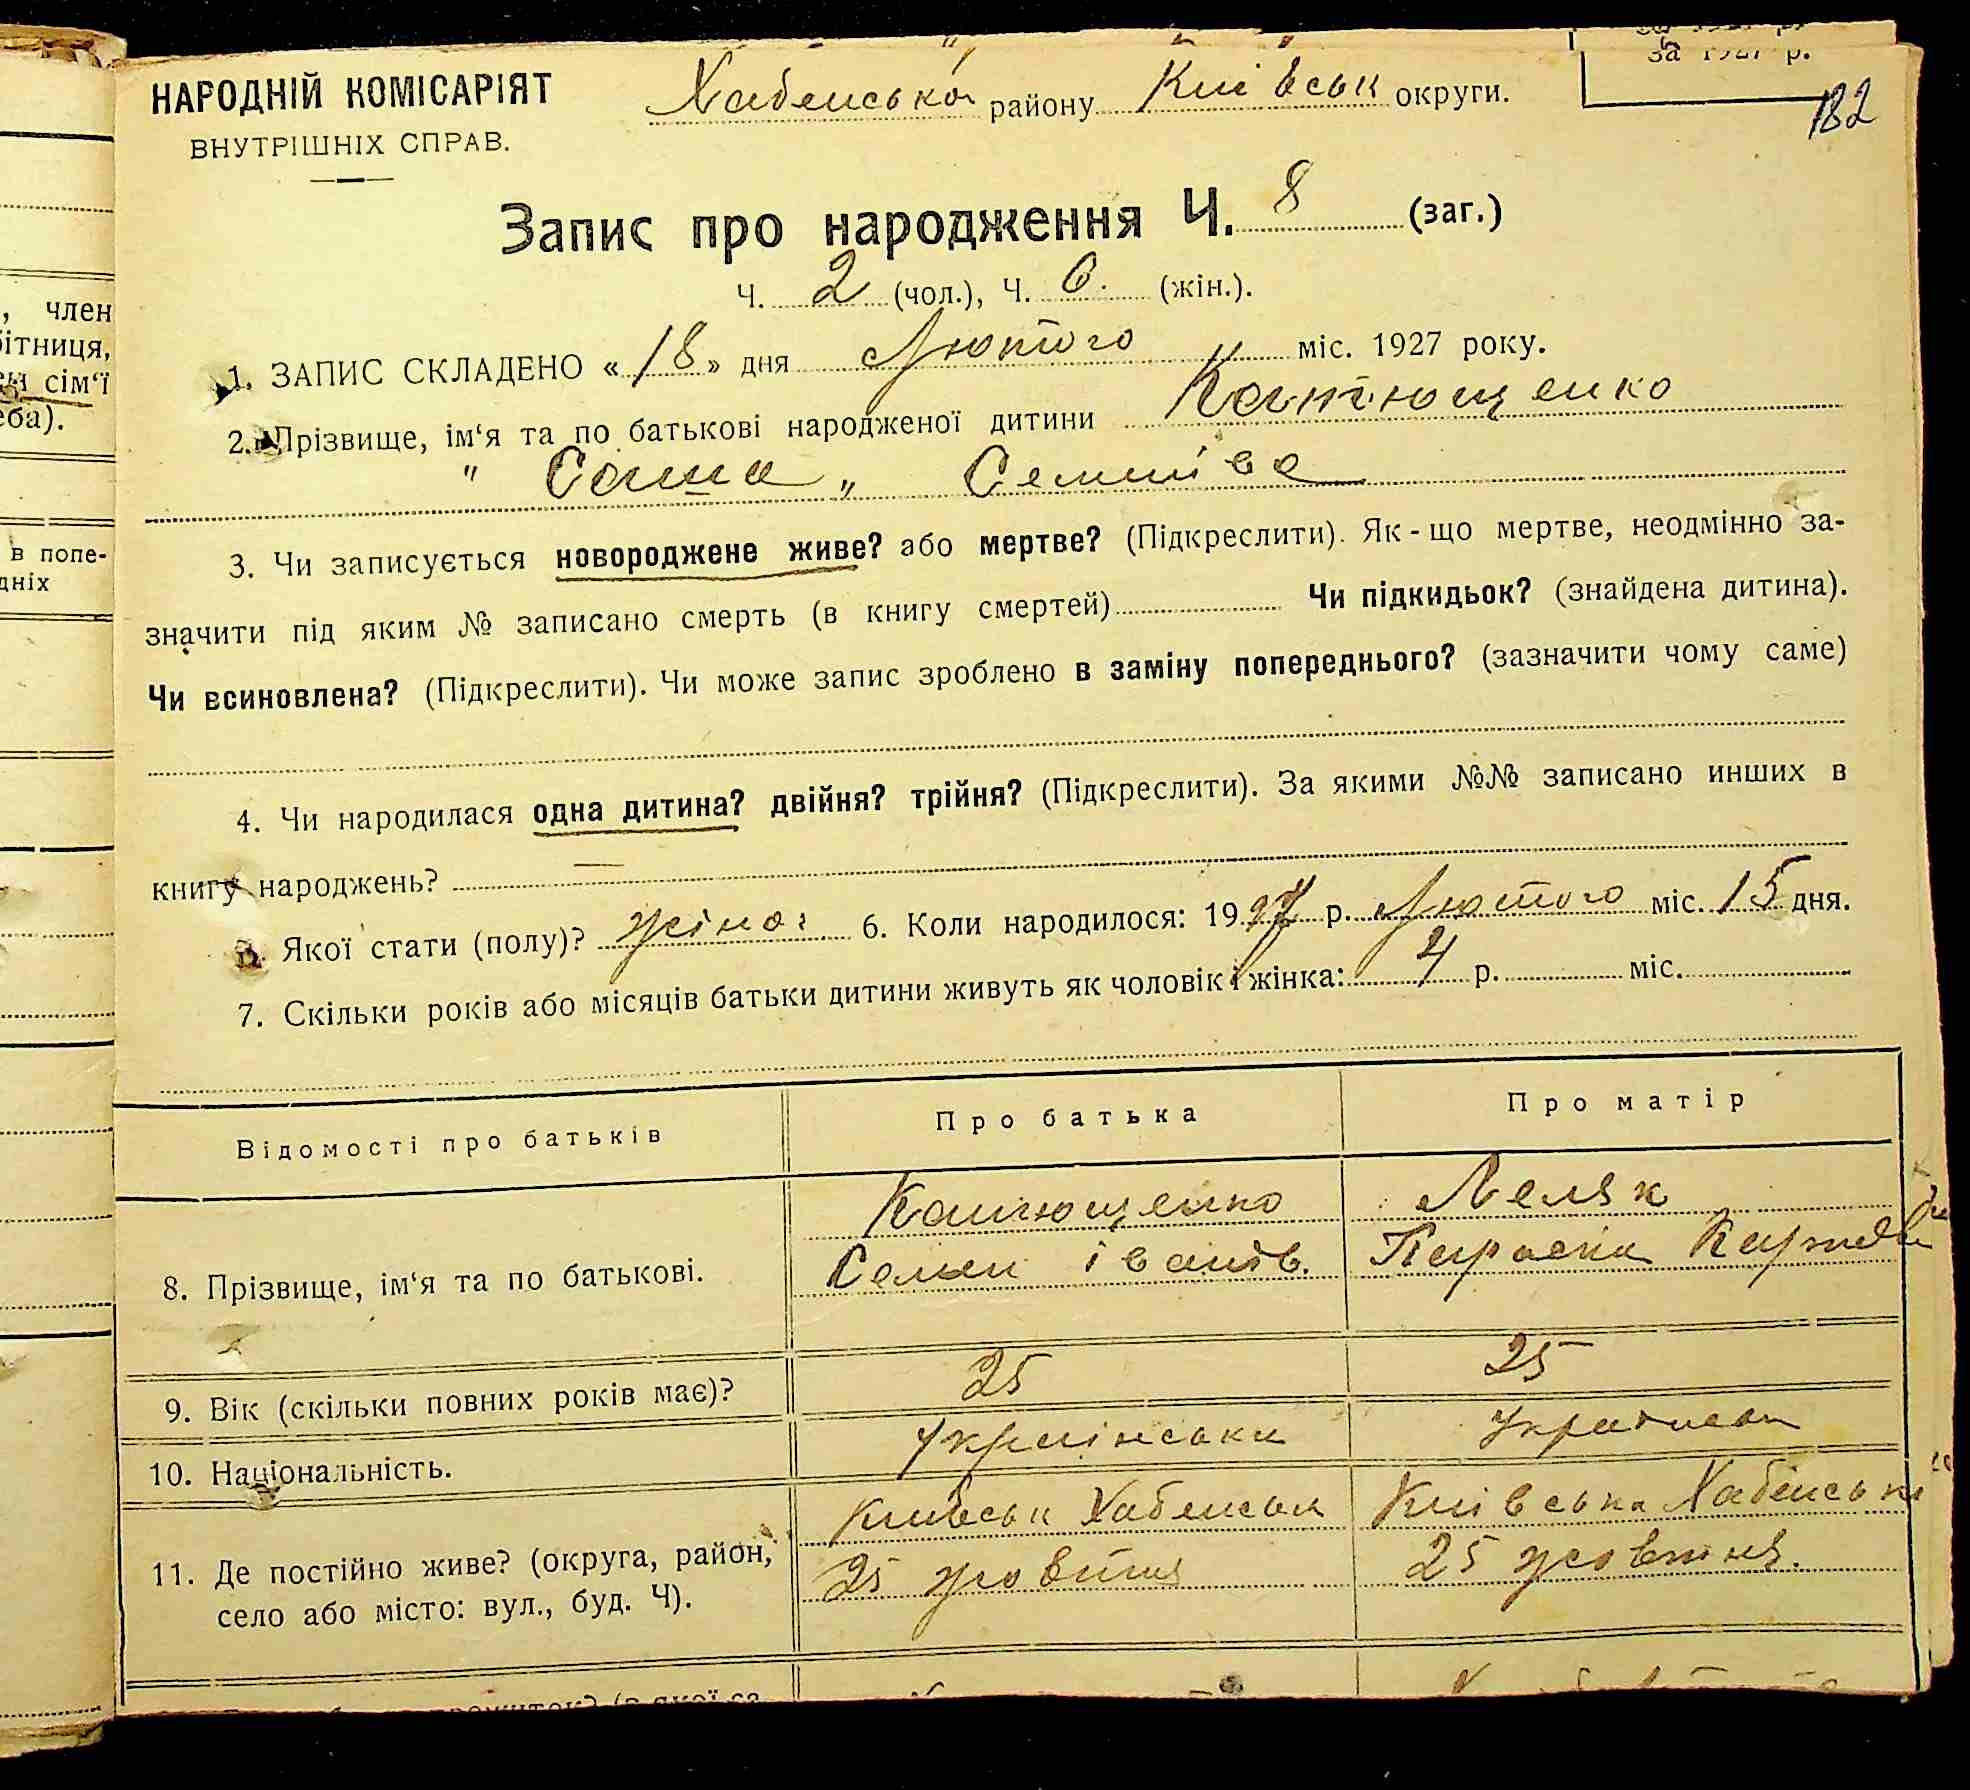 за 1927 р.
НАРОДНІЙ КОМІСАРІЯТ
ВНУТРІШНІХ СПРАВ.
Хабенського району Київськ округи.
182
Запис про народження Ч. 8 (заг.)
Ч. 2 (чол.), Ч. 6. (жін.).
1. ЗАПИС СКЛАДЕНО «18» дня Лютого міс. 1927 року.
2. Прізвище, ім‘я та по батькові народженої дитини Катющенко
" Саша „ Семиіва
3. Чи записується новороджене живе? або мертве? (Підкреслити). Як-що мертве, неодмінно за-
значити під яким № записано смерть (в книгу смертей) Чи підкидьок? (знайдена дитина).
Чи всиновлена? (Підкреслити). Чи може запис зроблено в заміну попереднього? (зазначити чому саме)
4. Чи народилася одна дитина? двійня? трійня? (Підкреслити). За якими №№ записано инших в
книгу народжень? —
Якої стати (полу)? жіноч 6. Коли народилося: 1927 р. Лютого міс. 15 дня.
7. Скільки років або місяців батьки дитини живуть як чоловік і жінка: 4 р. міс.
Відомості про батьків Про батька Про матір
8. Прізвище, ім‘я та по батькові. Катющенко Семен іванів. Леляк Параска
9. Вік (скільки повних років має)? 25 25
10. Національність. Українська Українська
11. Де постійно живе? (округа, район, Київськ Хабенськ Київська Хабенськ
село або місто: вул., буд. Ч). 25 жовтня 25 жовтня.
, член
бітниця,
сім‘ї
еба).
в попе-
дніх